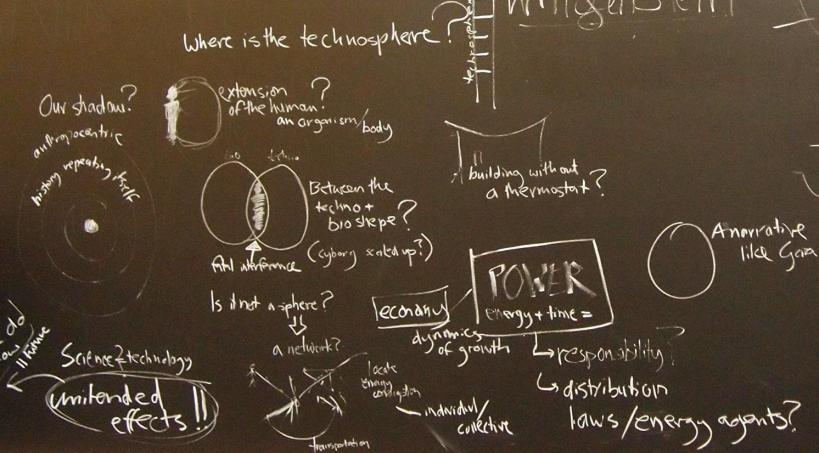 where is the technosphere?
Our shadow?
anthropocentric
history repeating itself
extension
of the human?
an organism/body
bio techno
Between the
techno +
bio shape?
(cyborg scaled up?)
building without
a thermostat?
A narrative
like Gaia
POWER
energy + time =
economy
dynamics
of growth
responsibility?
distribution
laws/energy agents?
Is it not a sphere?
a network?
locate
energy
transportation
individual/
collective
Science & technology
unitended
effects!!
do
future